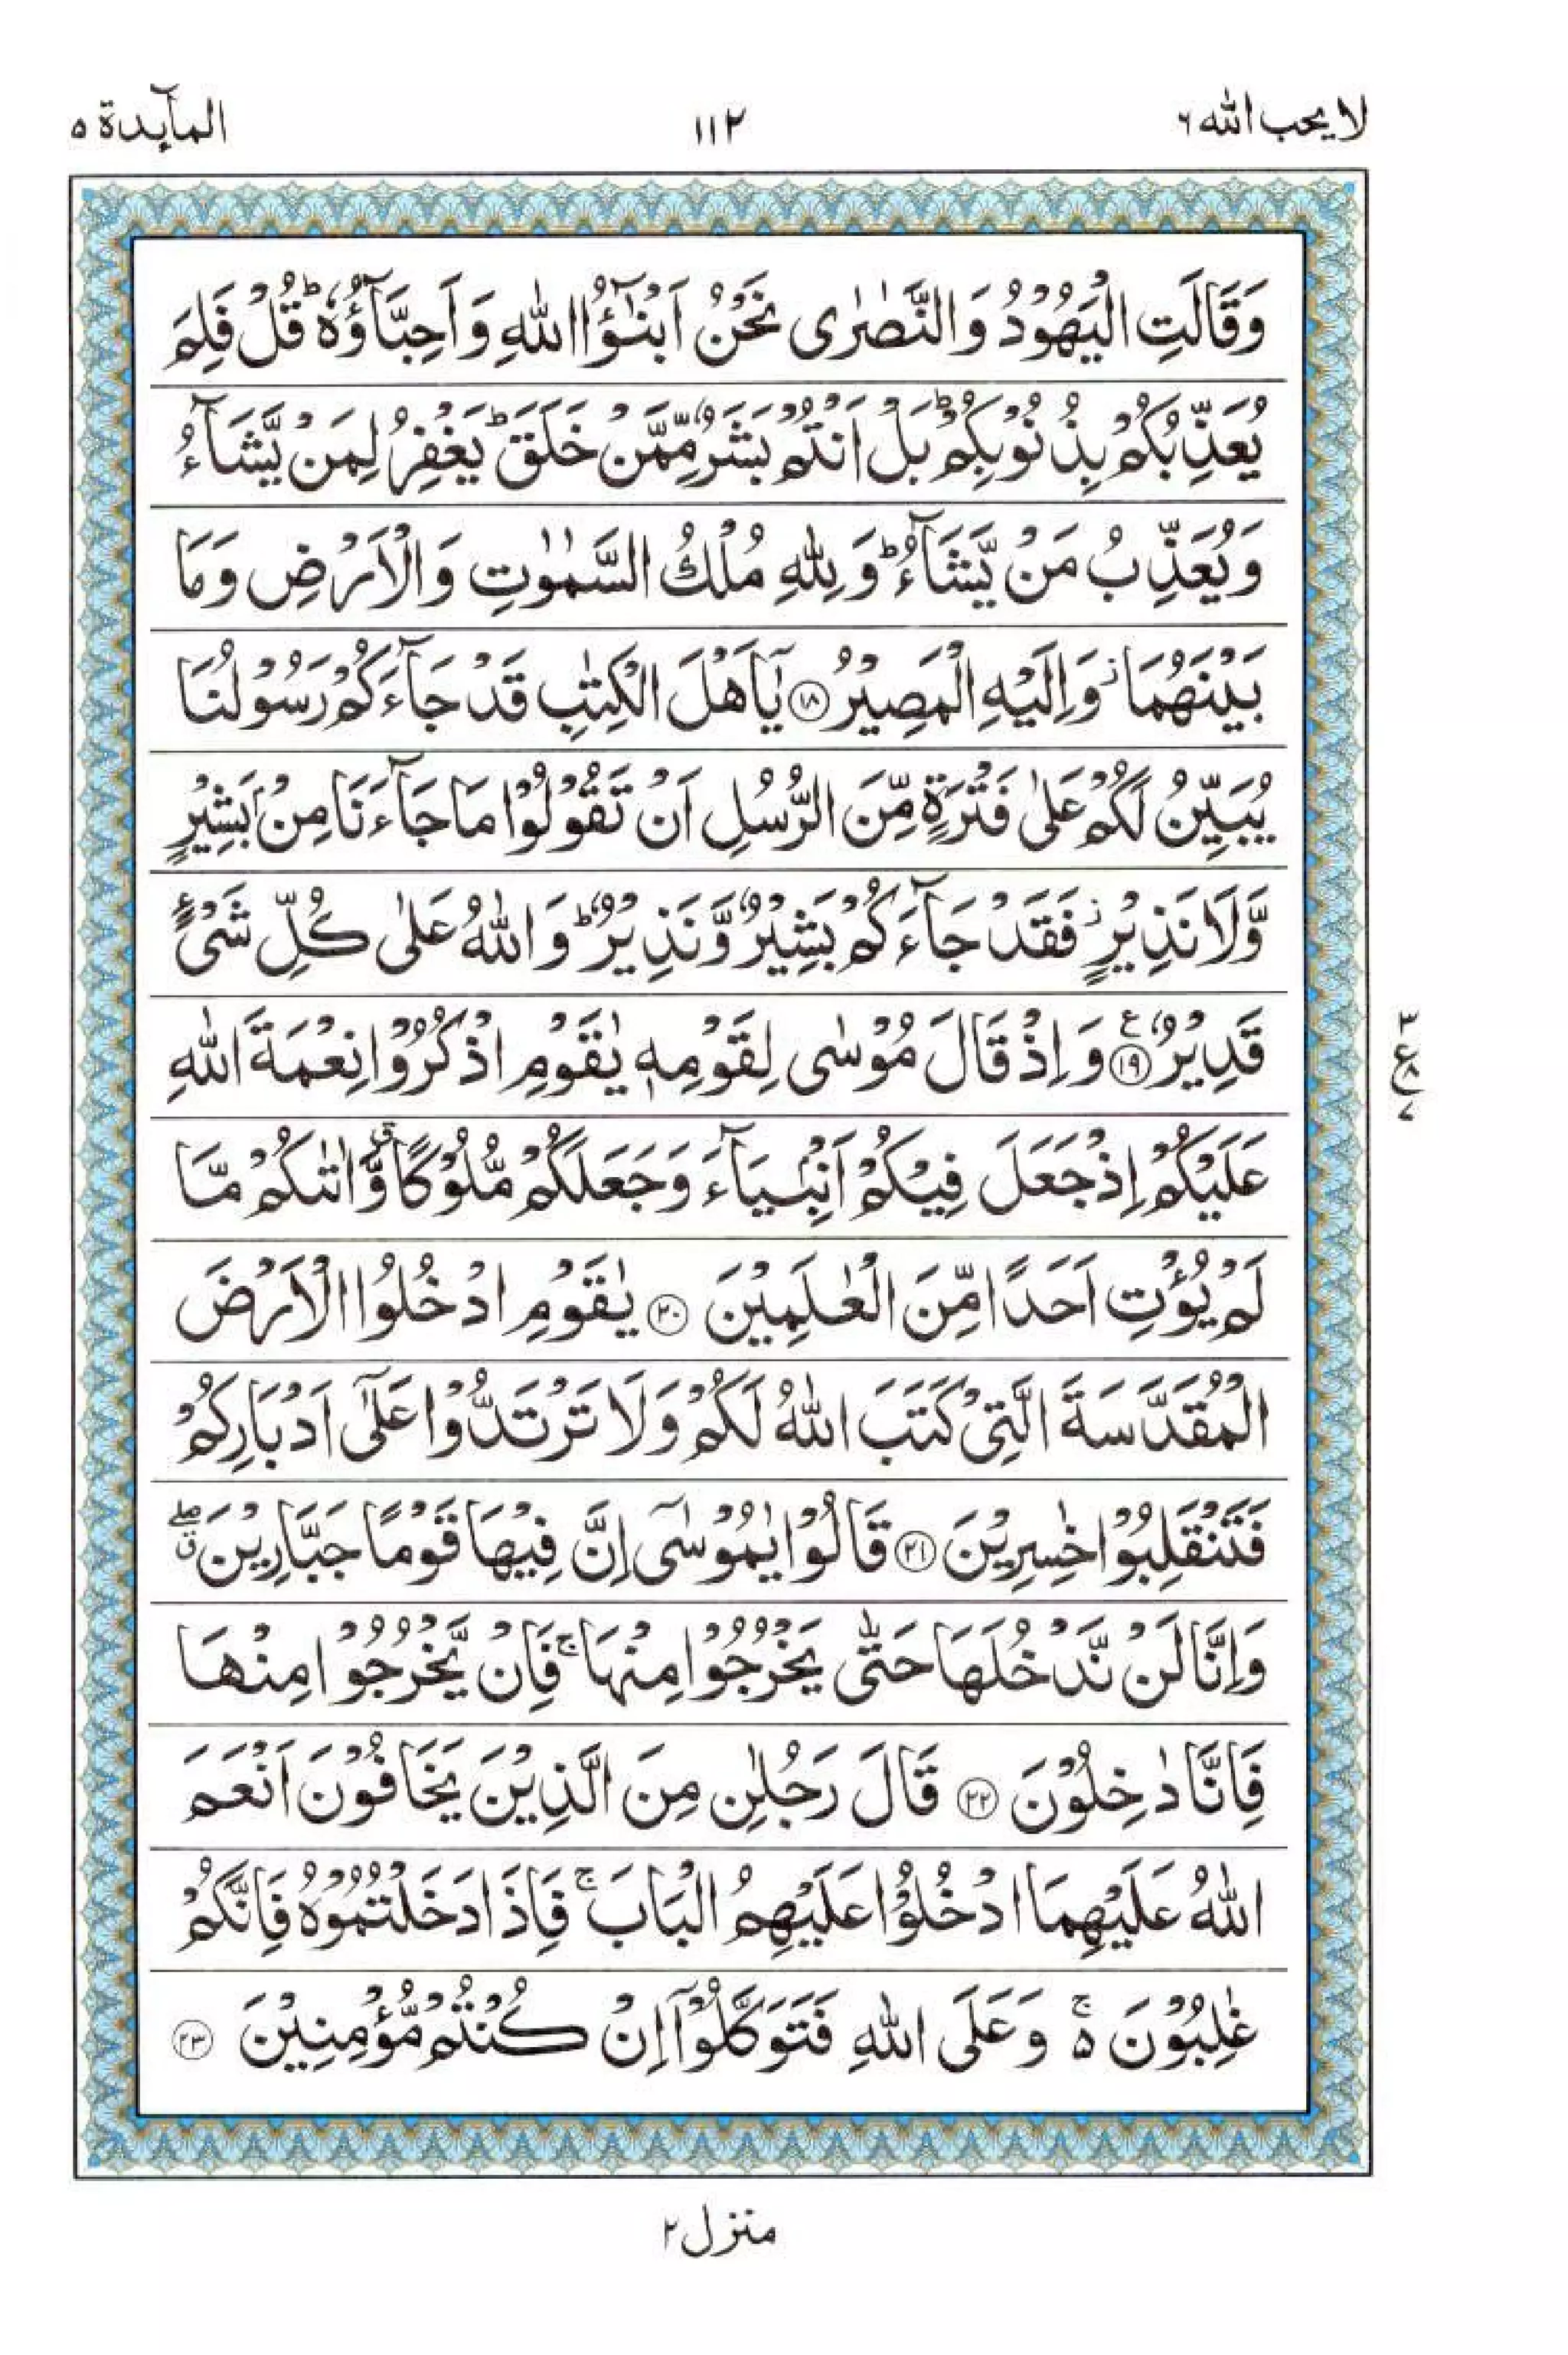 لا يحب الله ٦
١١٢
المآئدة ٥
وَقَالَتِ الْيَهُوْدُ وَالنَّصٰرٰى نَحْنُ اَبْنٰٓؤُا اللّٰهِ وَاَحِبَّآؤُهٗ ؕ قُلْ فَلِمَ
يُعَذِّبُكُمْ بِذُنُوْبِكُمْ ؕ بَلْ اَنْتُمْ بَشَرٌ مِّمَّنْ خَلَقَ ؕ يَغْفِرُ لِمَنْ يَّشَآءُ
وَيُعَذِّبُ مَنْ يَّشَآءُ ؕ وَلِلّٰهِ مُلْكُ السَّمٰوٰتِ وَالْاَرْضِ وَمَا
بَيْنَهُمَا ۫ وَاِلَيْهِ الْمَصِيْرُ ﴿۱۸﴾ يٰۤاَهْلَ الْكِتٰبِ قَدْ جَآءَكُمْ رَسُوْلُنَا
يُبَيِّنُ لَكُمْ عَلٰى فَتْرَةٍ مِّنَ الرُّسُلِ اَنْ تَقُوْلُوْا مَا جَآءَنَا مِنْۢ بَشِيْرٍ
وَّلَا نَذِيْرٍ ۫ فَقَدْ جَآءَكُمْ بَشِيْرٌ وَّنَذِيْرٌ ؕ وَاللّٰهُ عَلٰى كُلِّ شَىْءٍ
قَدِيْرٌ ﴿۱۹﴾ ع وَاِذْ قَالَ مُوْسٰى لِقَوْمِهٖ يٰقَوْمِ اذْكُرُوْا نِعْمَةَ اللّٰهِ
٣
ع ٨
٧
عَلَيْكُمْ اِذْ جَعَلَ فِيْكُمْ اَنْۢبِيَآءَ وَجَعَلَكُمْ مُّلُوْكًا ۖق وَّاٰتٰىكُمْ مَّا
لَمْ يُؤْتِ اَحَدًا مِّنَ الْعٰلَمِيْنَ ﴿۲۰﴾ يٰقَوْمِ ادْخُلُوا الْاَرْضَ
الْمُقَدَّسَةَ الَّتِىْ كَتَبَ اللّٰهُ لَكُمْ وَلَا تَرْتَدُّوْا عَلٰٓى اَدْبَارِكُمْ
فَتَنْقَلِبُوْا خٰسِرِيْنَ ﴿۲۱﴾ قَالُوْا يٰمُوْسٰٓى اِنَّ فِيْهَا قَوْمًا جَبَّارِيْنَ ۖق
وَاِنَّا لَنْ نَّدْخُلَهَا حَتّٰى يَخْرُجُوْا مِنْهَا ۚ فَاِنْ يَّخْرُجُوْا مِنْهَا
فَاِنَّا دٰخِلُوْنَ ﴿۲۲﴾ قَالَ رَجُلٰنِ مِنَ الَّذِيْنَ يَخَافُوْنَ اَنْعَمَ
اللّٰهُ عَلَيْهِمَا ادْخُلُوْا عَلَيْهِمُ الْبَابَ ۚ فَاِذَا دَخَلْتُمُوْهُ فَاِنَّكُمْ
غٰلِبُوْنَ ۵ۚ وَعَلَى اللّٰهِ فَتَوَكَّلُوْۤا اِنْ كُنْتُمْ مُّؤْمِنِيْنَ ﴿۲۳﴾
منزل ٢